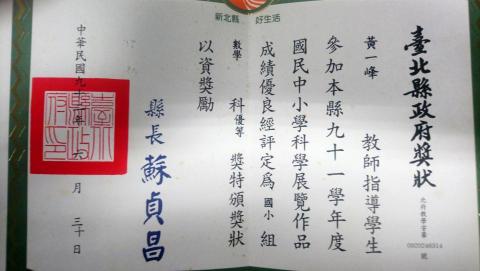 新北縣 好生活
臺北縣政府獎狀
北府教學字第
0920246314
號
黃一峰 教師指導學生
參加本縣九十一學年度
國民中小學科學展覽作品
成績優良經評定為 國小 組
數學 科 優等 獎特頒獎狀
以資獎勵
縣長 蘇貞昌
中華民國九十 年 六 月 三十 日